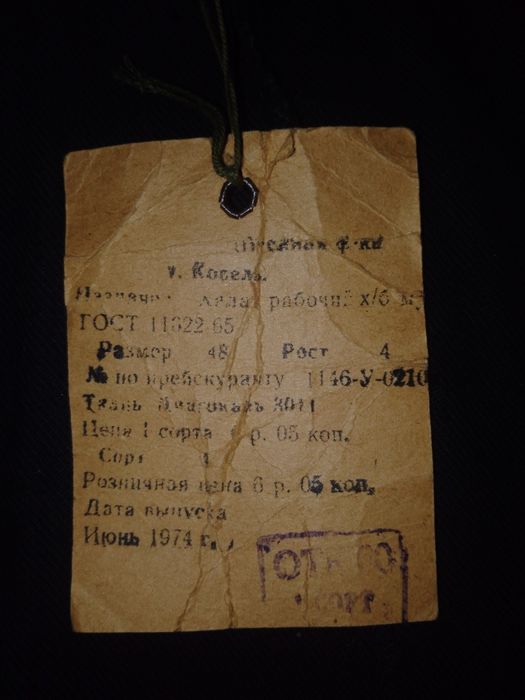 Швейная ф-ка
г. Козель
халат рабочий х/б м
ГОСТ 11622 65
Размер 48 Рост 4
№ по прейскуранту 1146-У-0210
Ткань Диагональ 3011
Цена 1 сорта 6 р. 05 коп.
Сорт 1
Розничная цена 6 р. 05 коп.
Дата выпуска
Июнь 1974 г.
ОТК
сорт